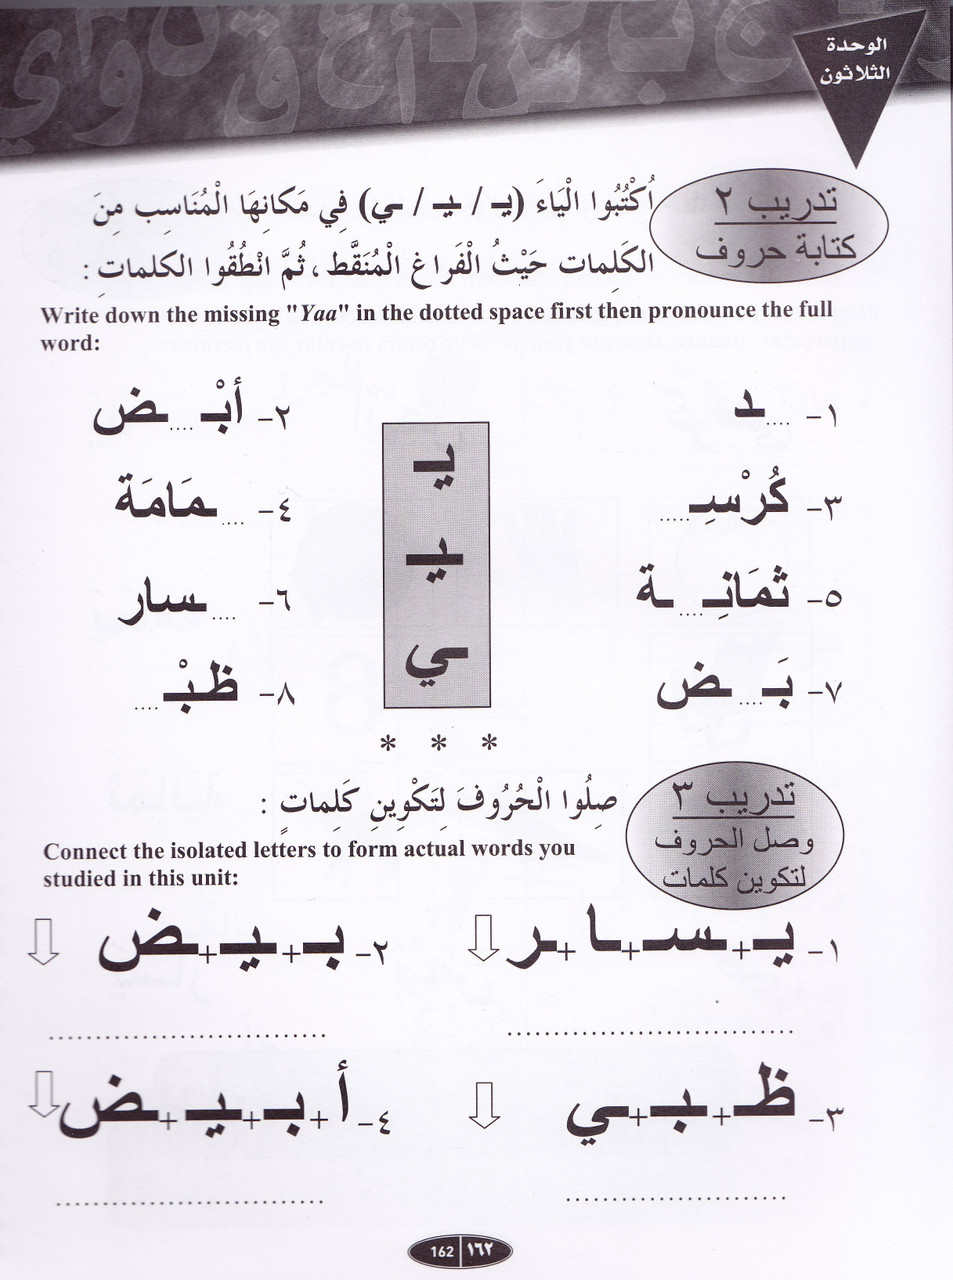 الوحدة
الثلاثون
تدريب ٢
كتابة حروف
اُكْتُبُوا الْيَاءَ (يـ / ـيـ / ـي) فِي مَكَانِهَا الْمُنَاسِبِ مِنَ
الكَلِمات حَيْثُ الْفَراغِ الْمُنَقَّط، ثُمَّ انْطُقُوا الكلماتِ :
Write down the missing "Yaa" in the dotted space first then pronounce the full
word:
١- ....ـد
٢- أبْـ....ـض
٣- كُرْسِـ.....
٤- ....ـمَامَة
٥- ثمَانِـ....ـة
٦- ....ـسار
٧- بَـ....ـض
٨- ظبْـ....
يـ
ـيـ
ـي
* * *
تدريب ٣
وصل الحروف
لتكوين كلمات
صِلُوا الْحُرُوفَ لِتَكْوِينِ كَلِماتٍ :
Connect the isolated letters to form actual words you
studied in this unit:
١- يـ+ـسـ+ـا+ـر
٢- بـ+ـيـ+ـض
................................
................................
٣- ظـ+ـبـ+ـي
٤- أ+بـ+ـيـ+ـض
................................
................................
162 ١٦٢